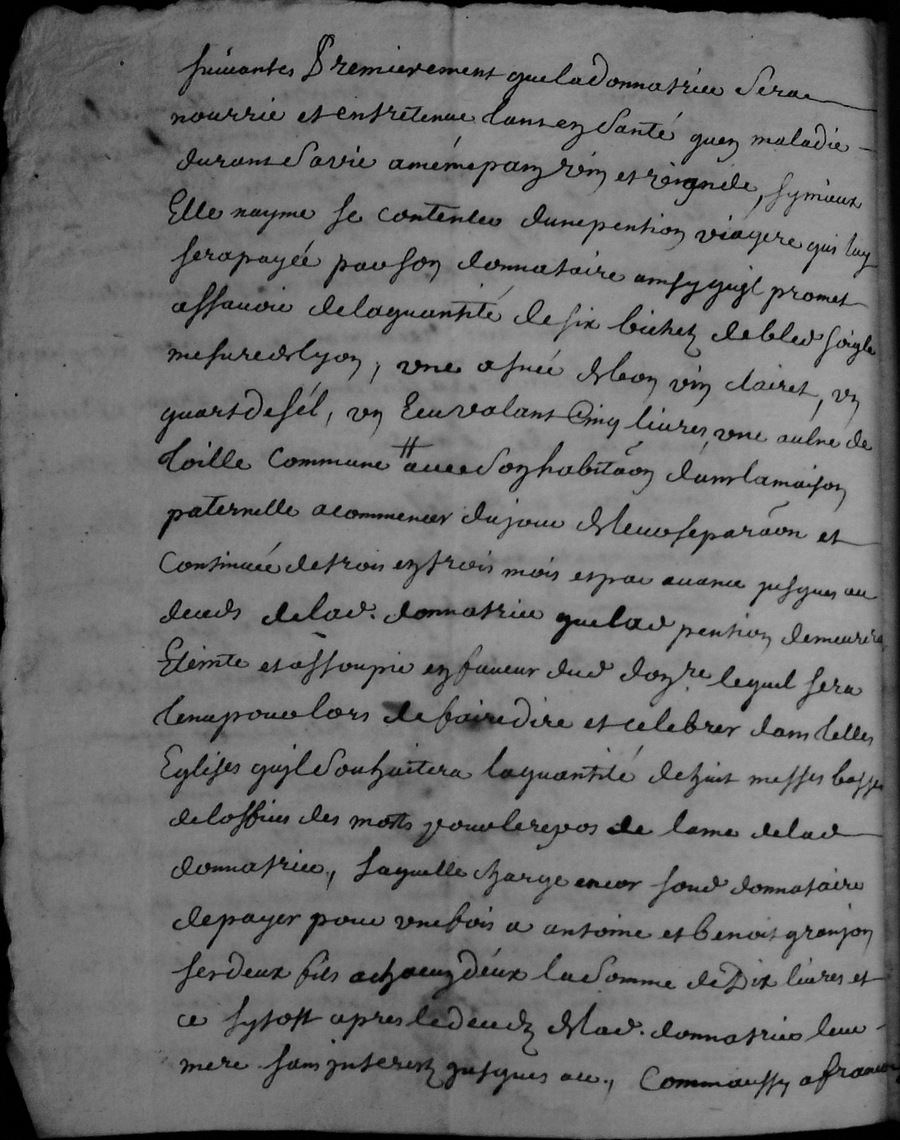 suivantes Premierement que la donnatrice sera
nourrie et entretenue tant en santé quen maladie
durant sa vie a même pain vin et viande, sy mieux
Elle nayme se contenter dune pention viagere qui luy
sera payée par son donnataire ainsy quil promet
assavoir de la quantité de six bichez de bled soigle
mesure de lyon, une asnée de bon vin clairet, un
quart de sél, un Ecu valant Cinq livres, une aulne de
toille Commune # avec son habitãon dans la maison
paternelle a commencer du jour de leur separãon et
Continuée de trois en trois mois et par avance jusques au
deceds de lad. donnatrice que lad pention demeurera
Eteinte et assoupie en faveur dud donre. lequel sera
tenu pour lors de faire dire et celebrer dans telles
Eglises quil souhaitera la quantité de huit messes basses
de loffice des morts pour le repos de lame de lad
donnatrice, laquelle charge encor sond donnataire
de payer pour une fois a antoine et benoit granjon
ses deux fils a chacun déux la somme de Dix livres et
ce sytost apres le decedz de lad. donnatrice leur
mere sans interestz jusques au, Comm aussy a francois